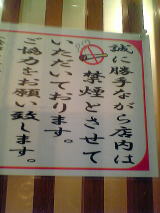 誠に勝手ながら店内は
禁煙とさせて
いただいております。
ご協力をお願い致します。